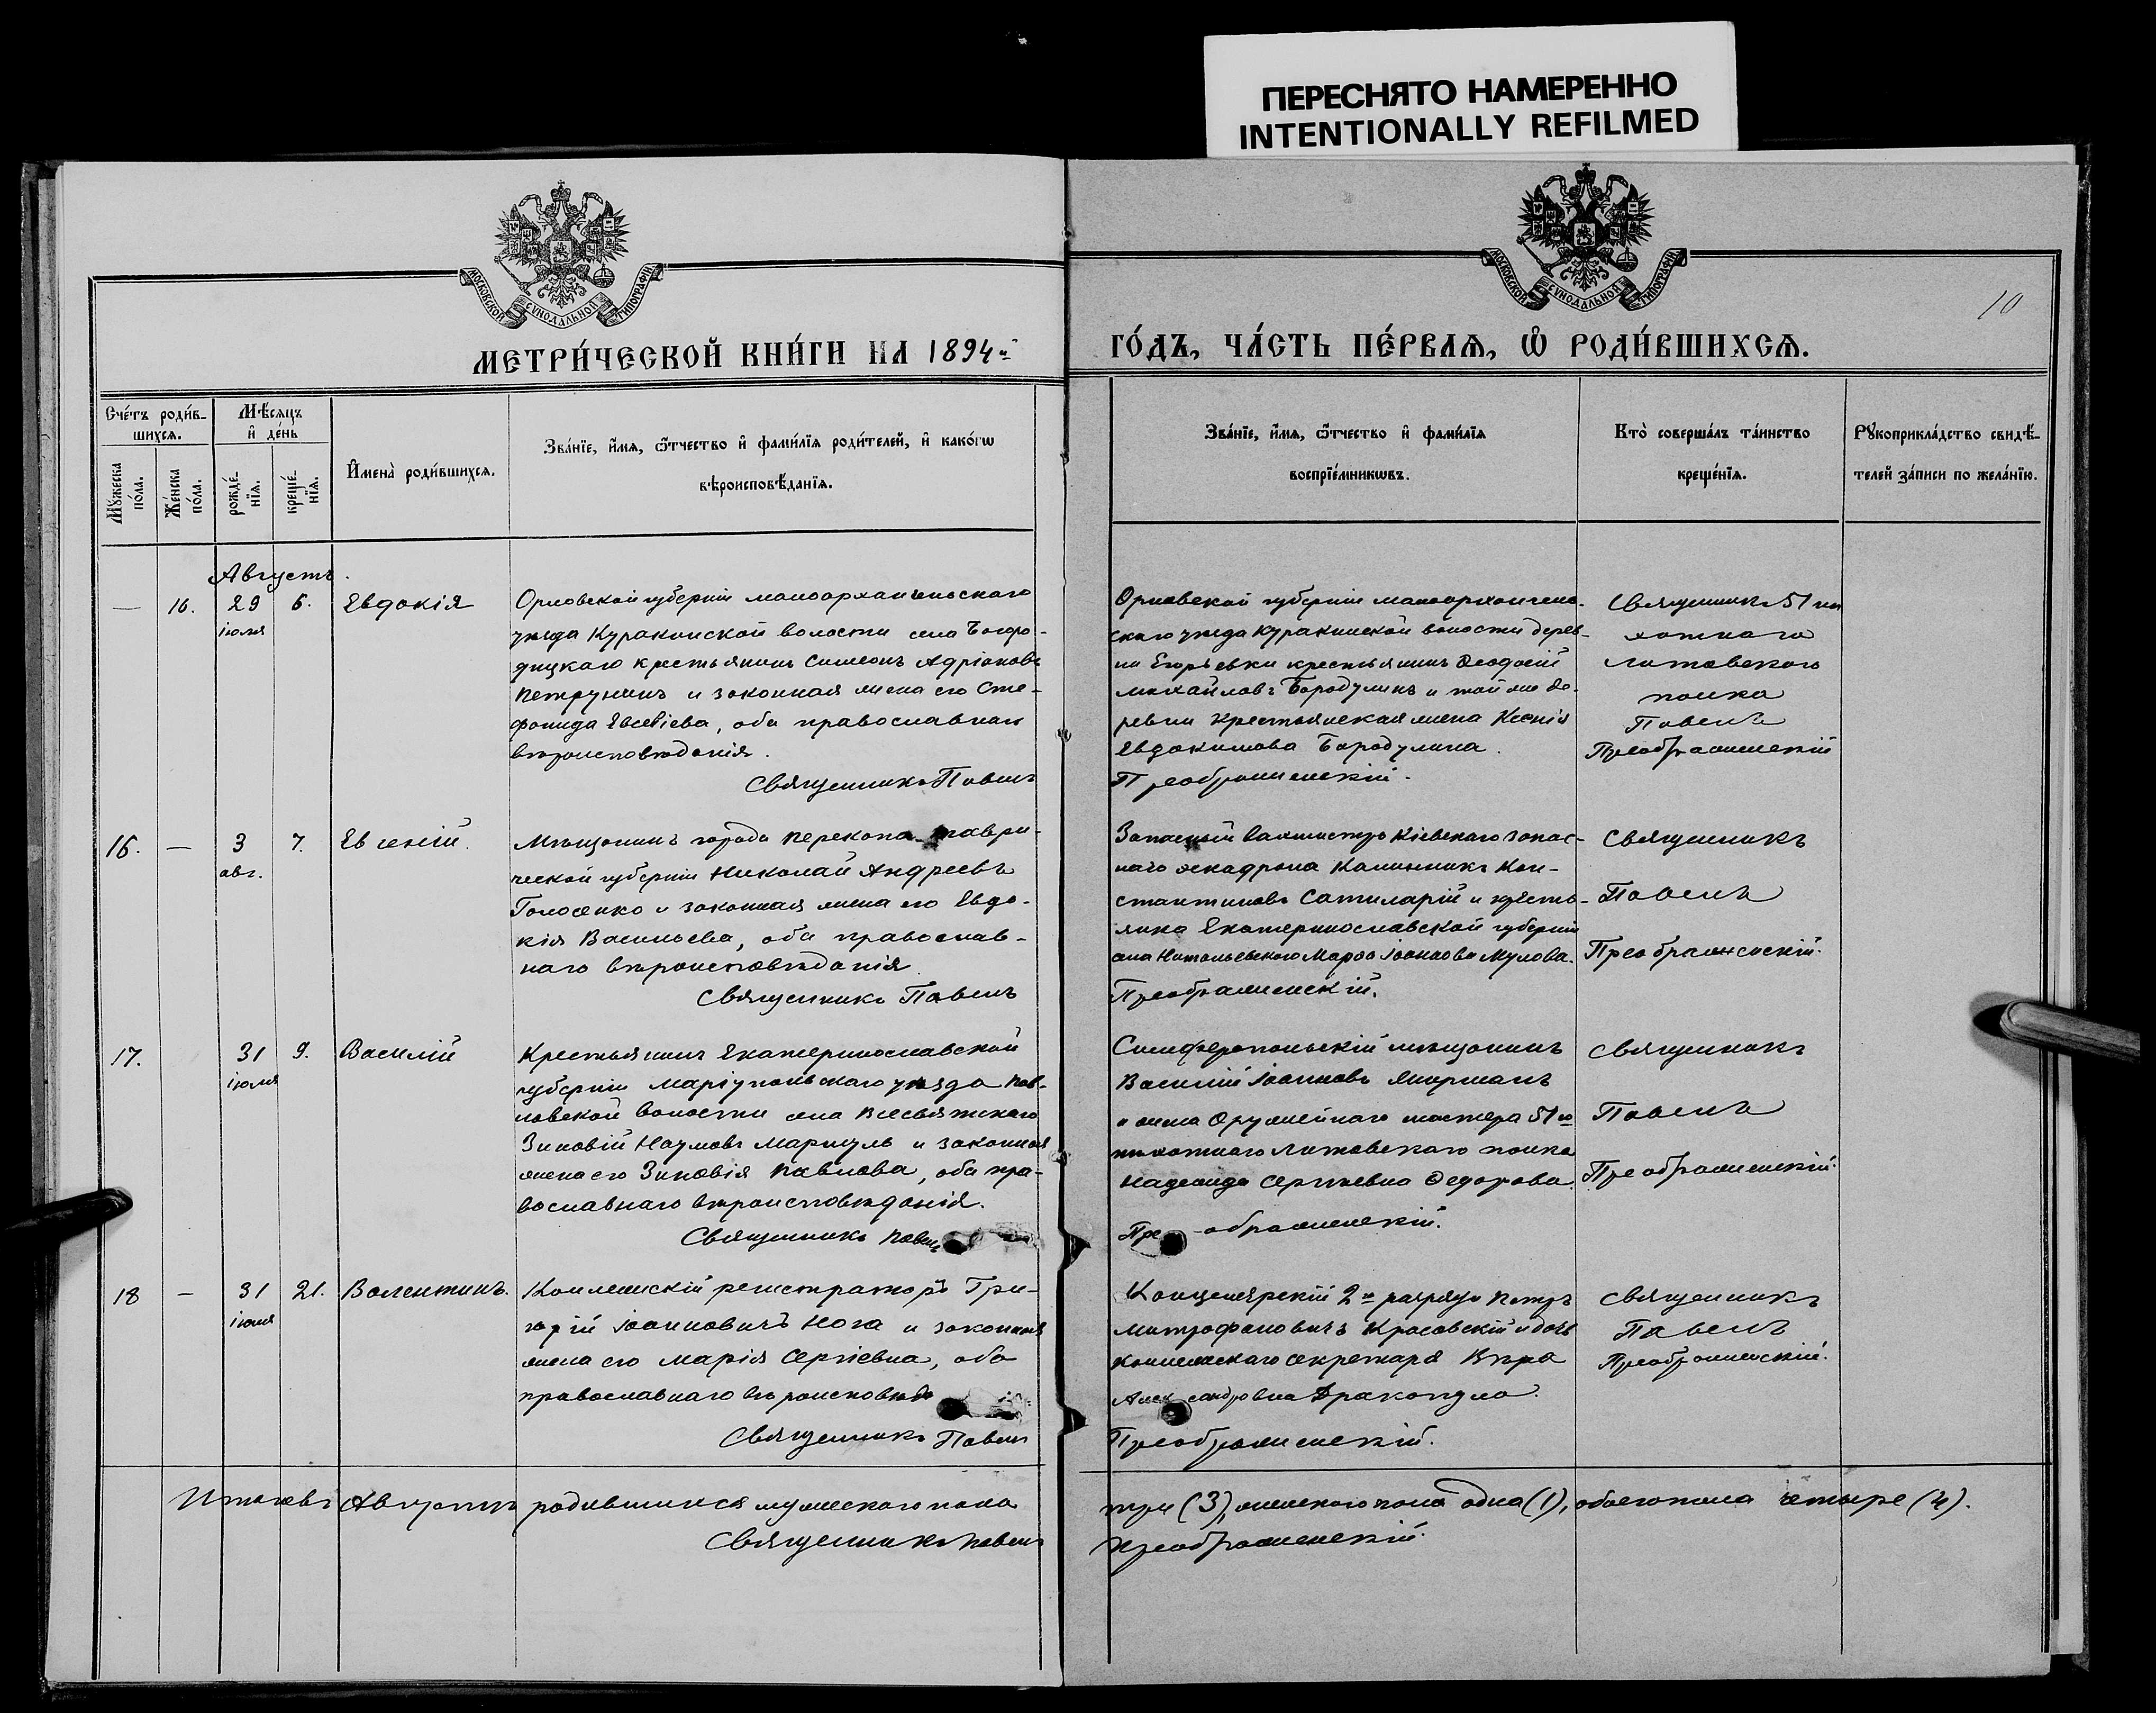 ПЕРЕСНЯТО НАМЕРЕННО
INTENTIONALLY REFILMED
МОСКОВСКОЙ СѴНОДАЛЬНОЙ ТИПОГРАФІИ
МОСКОВСКОЙ СѴНОДАЛЬНОЙ ТИПОГРАФІИ
10
МЕТРИ́ЧЕСКОЙ КНИ́ГИ НА 1894й
ГО́ДЪ, ЧА́СТЬ ПЕ́РВАѦ, Ѡ РОДИ́ВШИХСѦ.
Сче́тъ роди́в-
шихсѧ.
Мѣ́сѧцъ
и҆ де́нь
Мꙋ́жеска
по́ла.
Же́нска
по́ла.
рожде́-
нїѧ.
креще́-
нїѧ.
И҆мена̀ роди́вшихсѧ.
Зва́нїе, и҆́мѧ, ѻ҆́тчество и҆ фами́лїѧ роди́телей, и҆ како́гѡ
вѣроисповѣ́данїѧ.
Зва́нїе, и҆́мѧ, ѻ҆́тчество и҆ фами́лїѧ
воспрїе́мникѡвъ.
Кто̀ соверша́лъ та́инство
креще́нїѧ.
Рꙋкоприкла́дство свидѣ́-
телей за́писи по жела́нїю.
Августъ.
— 16. 29 іюля 6. Евдокія
Орловской губерніи малоархангельскаго
уѣзда Куракинской волости села Богоро-
дицкаго крестьянинъ Симеонъ Адріановъ
Петрунинъ и законная жена его Сте-
фанида Евсевіева, оба православнаго
вѣроисповѣданія.
Священникъ Павелъ
Орловской губерніи малоархангель-
скаго уѣзда Куракинской волости дерев-
ни Егорьевки крестьянинъ Ѳеодосій
Михайловъ Бородулинъ и той же де-
ревни крестьянская жена Ксенія
Евдокимова Бородулина.
Преображенскій.
Священникъ 51 пѣ
хотнаго
Литовскаго
полка
Павелъ
Преображенскій
16. — 3 авг. 7. Евгеній.
Мѣщанинъ города Перекопа Таври-
ческой губерніи Николай Андреевъ
Голосенко и законная жена его Евдо-
кія Васильева, оба православ-
наго вѣроисповѣданія.
Священникъ Павелъ
Запасный вахмистръ Кіевскаго запас-
наго эскадрона Калинникъ Кон-
стантиновъ Сатиларій и кресть-
янка Екатеринославской губерніи
села Марѳа Іоаннова Мулова.
Преображенскій.
Священникъ
Павелъ
Преображенскій.
17. 31 іюля 9. Василій
Крестьянинъ Екатеринославской
губерніи Маріупольскаго уѣзда Пав-
ловской волости села Всесвятскаго
Зиновій Наумовъ и законная
жена его Зиновія Павлова, оба пра-
вославнаго вѣроисповѣданія.
Священникъ Павелъ
Симферопольскій мѣщанинъ
Василій Іоанновъ
и жена Оружейнаго мастера 51го
пѣхотнаго Литовскаго полка
Надежда Сергіевна Ѳедорова.
Преображенскій.
Священникъ
Павелъ
Преображенскій.
18 — 31 іюля 21. Валентинъ.
Коллежскій регистраторъ Гри-
горій Іоанновичъ Нога и законная
жена его Марія Сергіевна, оба
православнаго вѣроисповѣда
Священникъ Павелъ
Канцелярскій 2го разряда Петръ
Митрофановичъ Красовскій и дочь
Коллежскаго Секретаря Вѣра
Александровна Дракопуло.
Преображенскій.
Священникъ
Павелъ
Преображенскій.
Итого въ Августѣ родившихся мужескаго пола три (3), женскаго пола одна (1), обоего пола четыре (4).
Священникъ Павелъ Преображенскій.